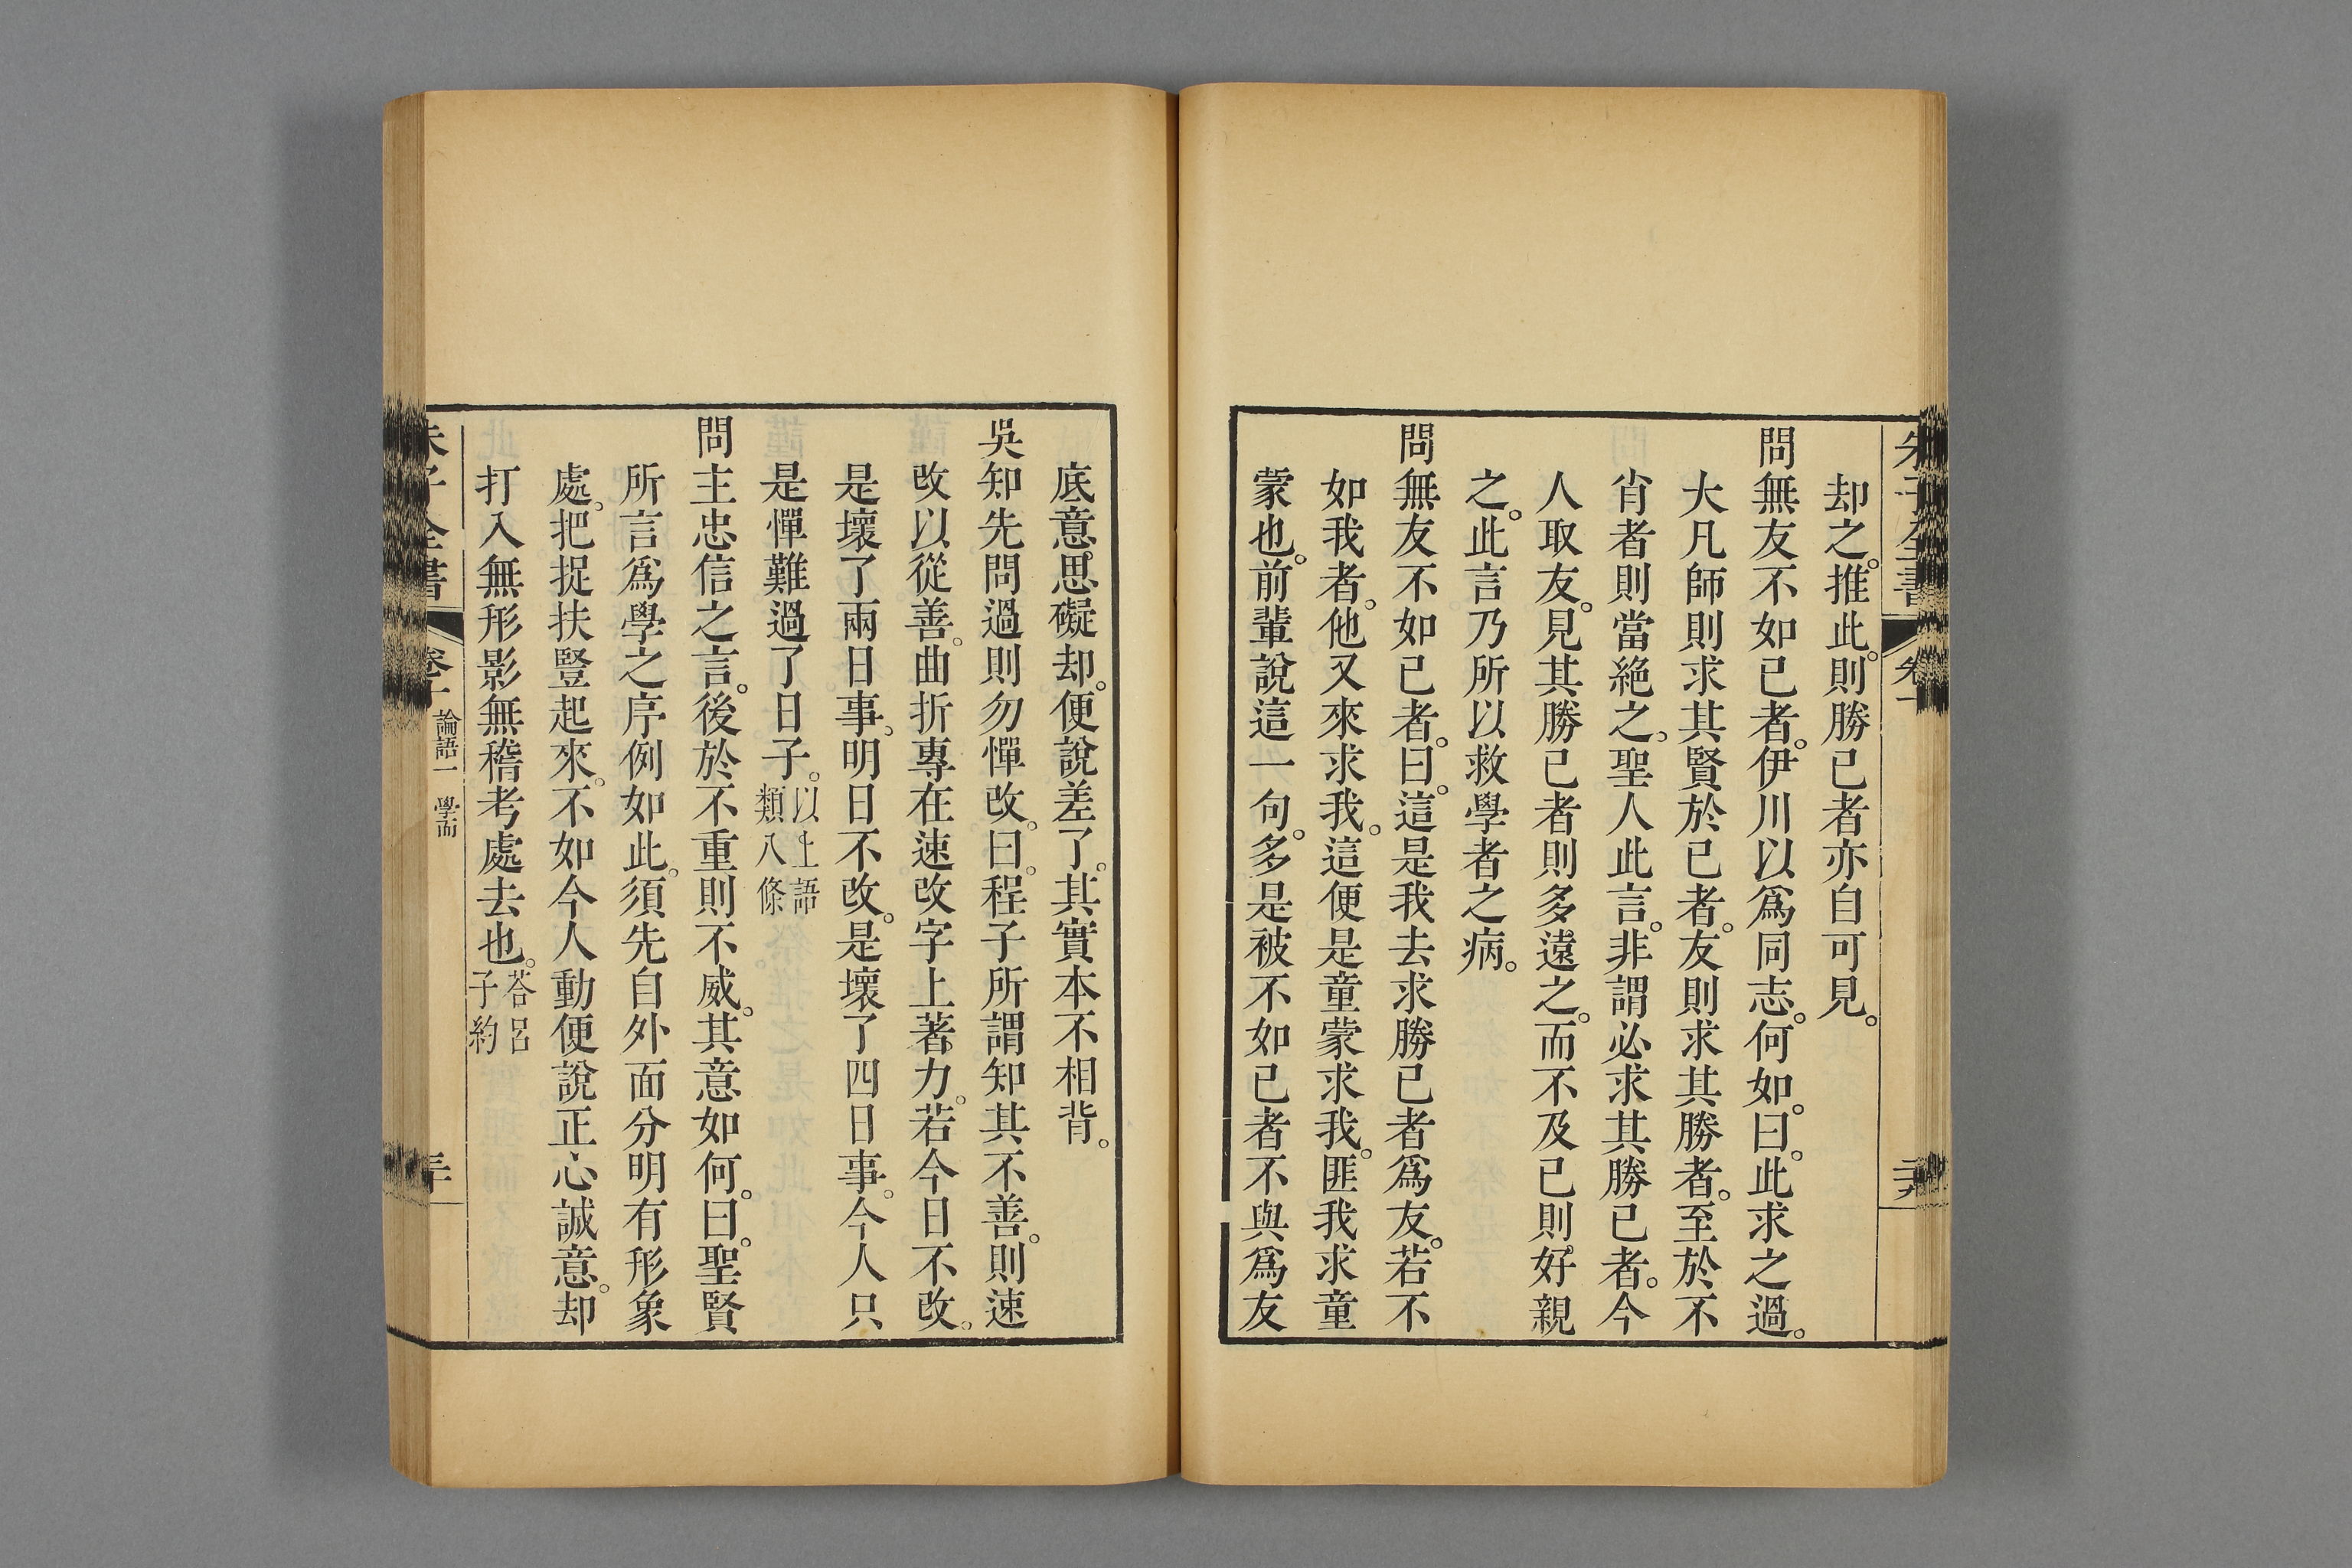 却之。推此。則勝已者亦自可見。
問無友不如已者。伊川以爲同志。何如。曰。此求之過。
大凡師則求其賢於已者。友則求其勝者。至於不
肖者則當絕之。聖人此言。非謂必求其勝已者。今
人取友。見其勝已者則多遠之。而不及已則好親
之。此言乃所以救學者之病。
問無友不如已者。曰。這是我去求勝已者爲友。若不
如我者。他又來求我。這便是童蒙求我。匪我求童
蒙也。前輩說這一句。多是被不如已者不與爲友
底意思礙却。便說差了。其實本不相背。
吳知先問過則勿憚改。曰。程子所謂知其不善。則速
改以從善。曲折專在速改字上著力。若今日不改。
是壞了兩日事。明日不改。是壞了四日事。今人只
是憚難過了日子。以上語類八條
問主忠信之言。後於不重則不威。其意如何。曰。聖賢
所言爲學之序例如此。須先自外面分明有形象
處。把捉扶豎起來。不如今人動便說正心誠意。却
打入無形影無稽考處去也。荅呂子約
朱子全書
卷十
論語一 學而